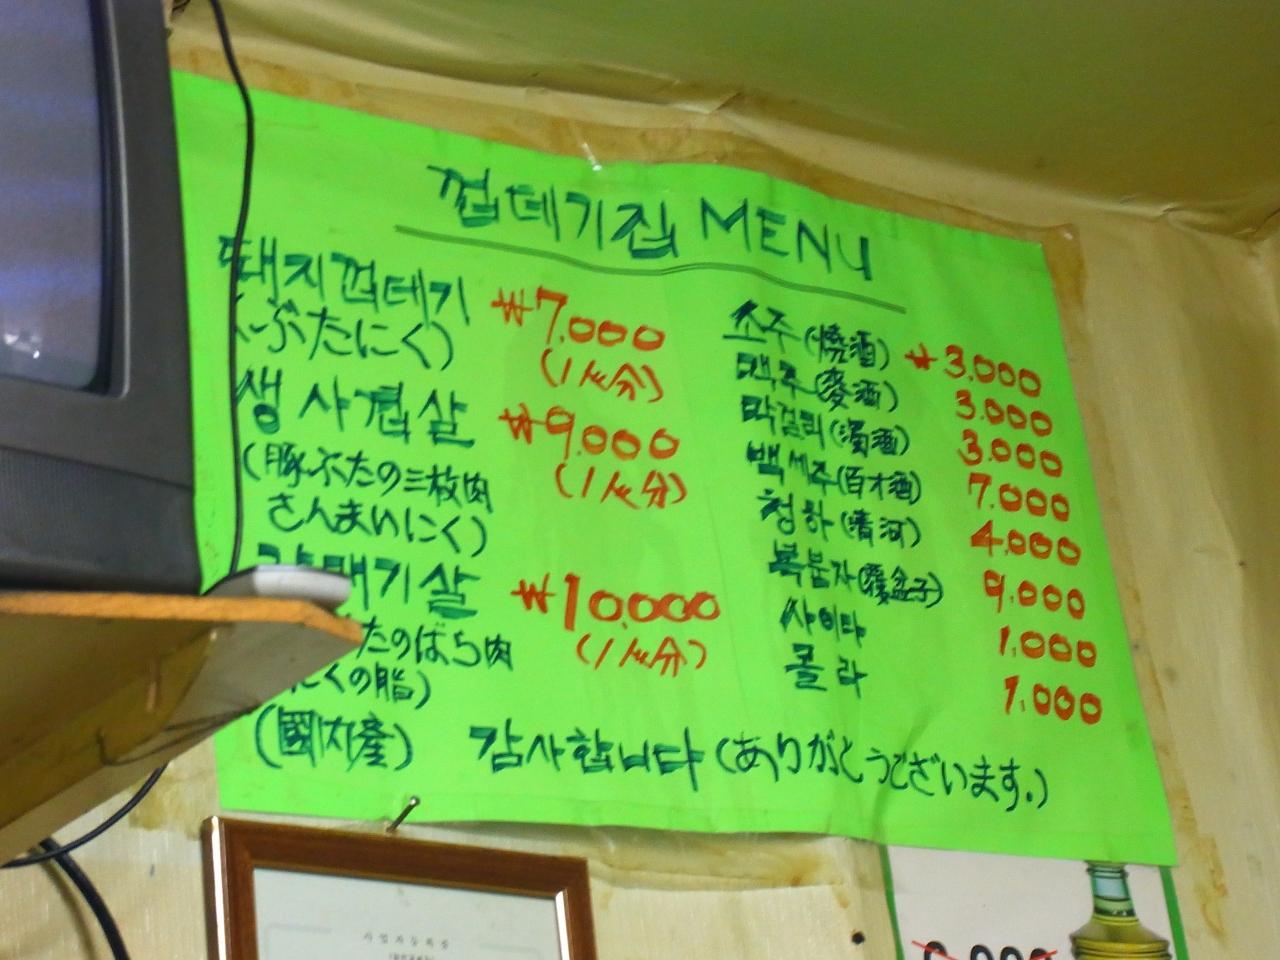 껍데기집 MENU
돼지껍데기 ₩7.000
(ぶたにく) (1人分)
생사겹살 ₩9.000
(豚ぶたの三枚肉 (1人分)
さんまいにく)
갈매기살 ₩10.000
たのばら肉 (1人分)
にくの脂)
(國內產)
소주(燒酒) ₩3.000
맥주(麥酒) 3.000
막걸리(濁酒) 3.000
백세주(百才酒) 7.000
청하(淸河) 4.000
복분자(覆盆子) 9.000
사이다 1.000
콜라 1.000
감사합니다 (ありがとうございます.)
사업자등록증